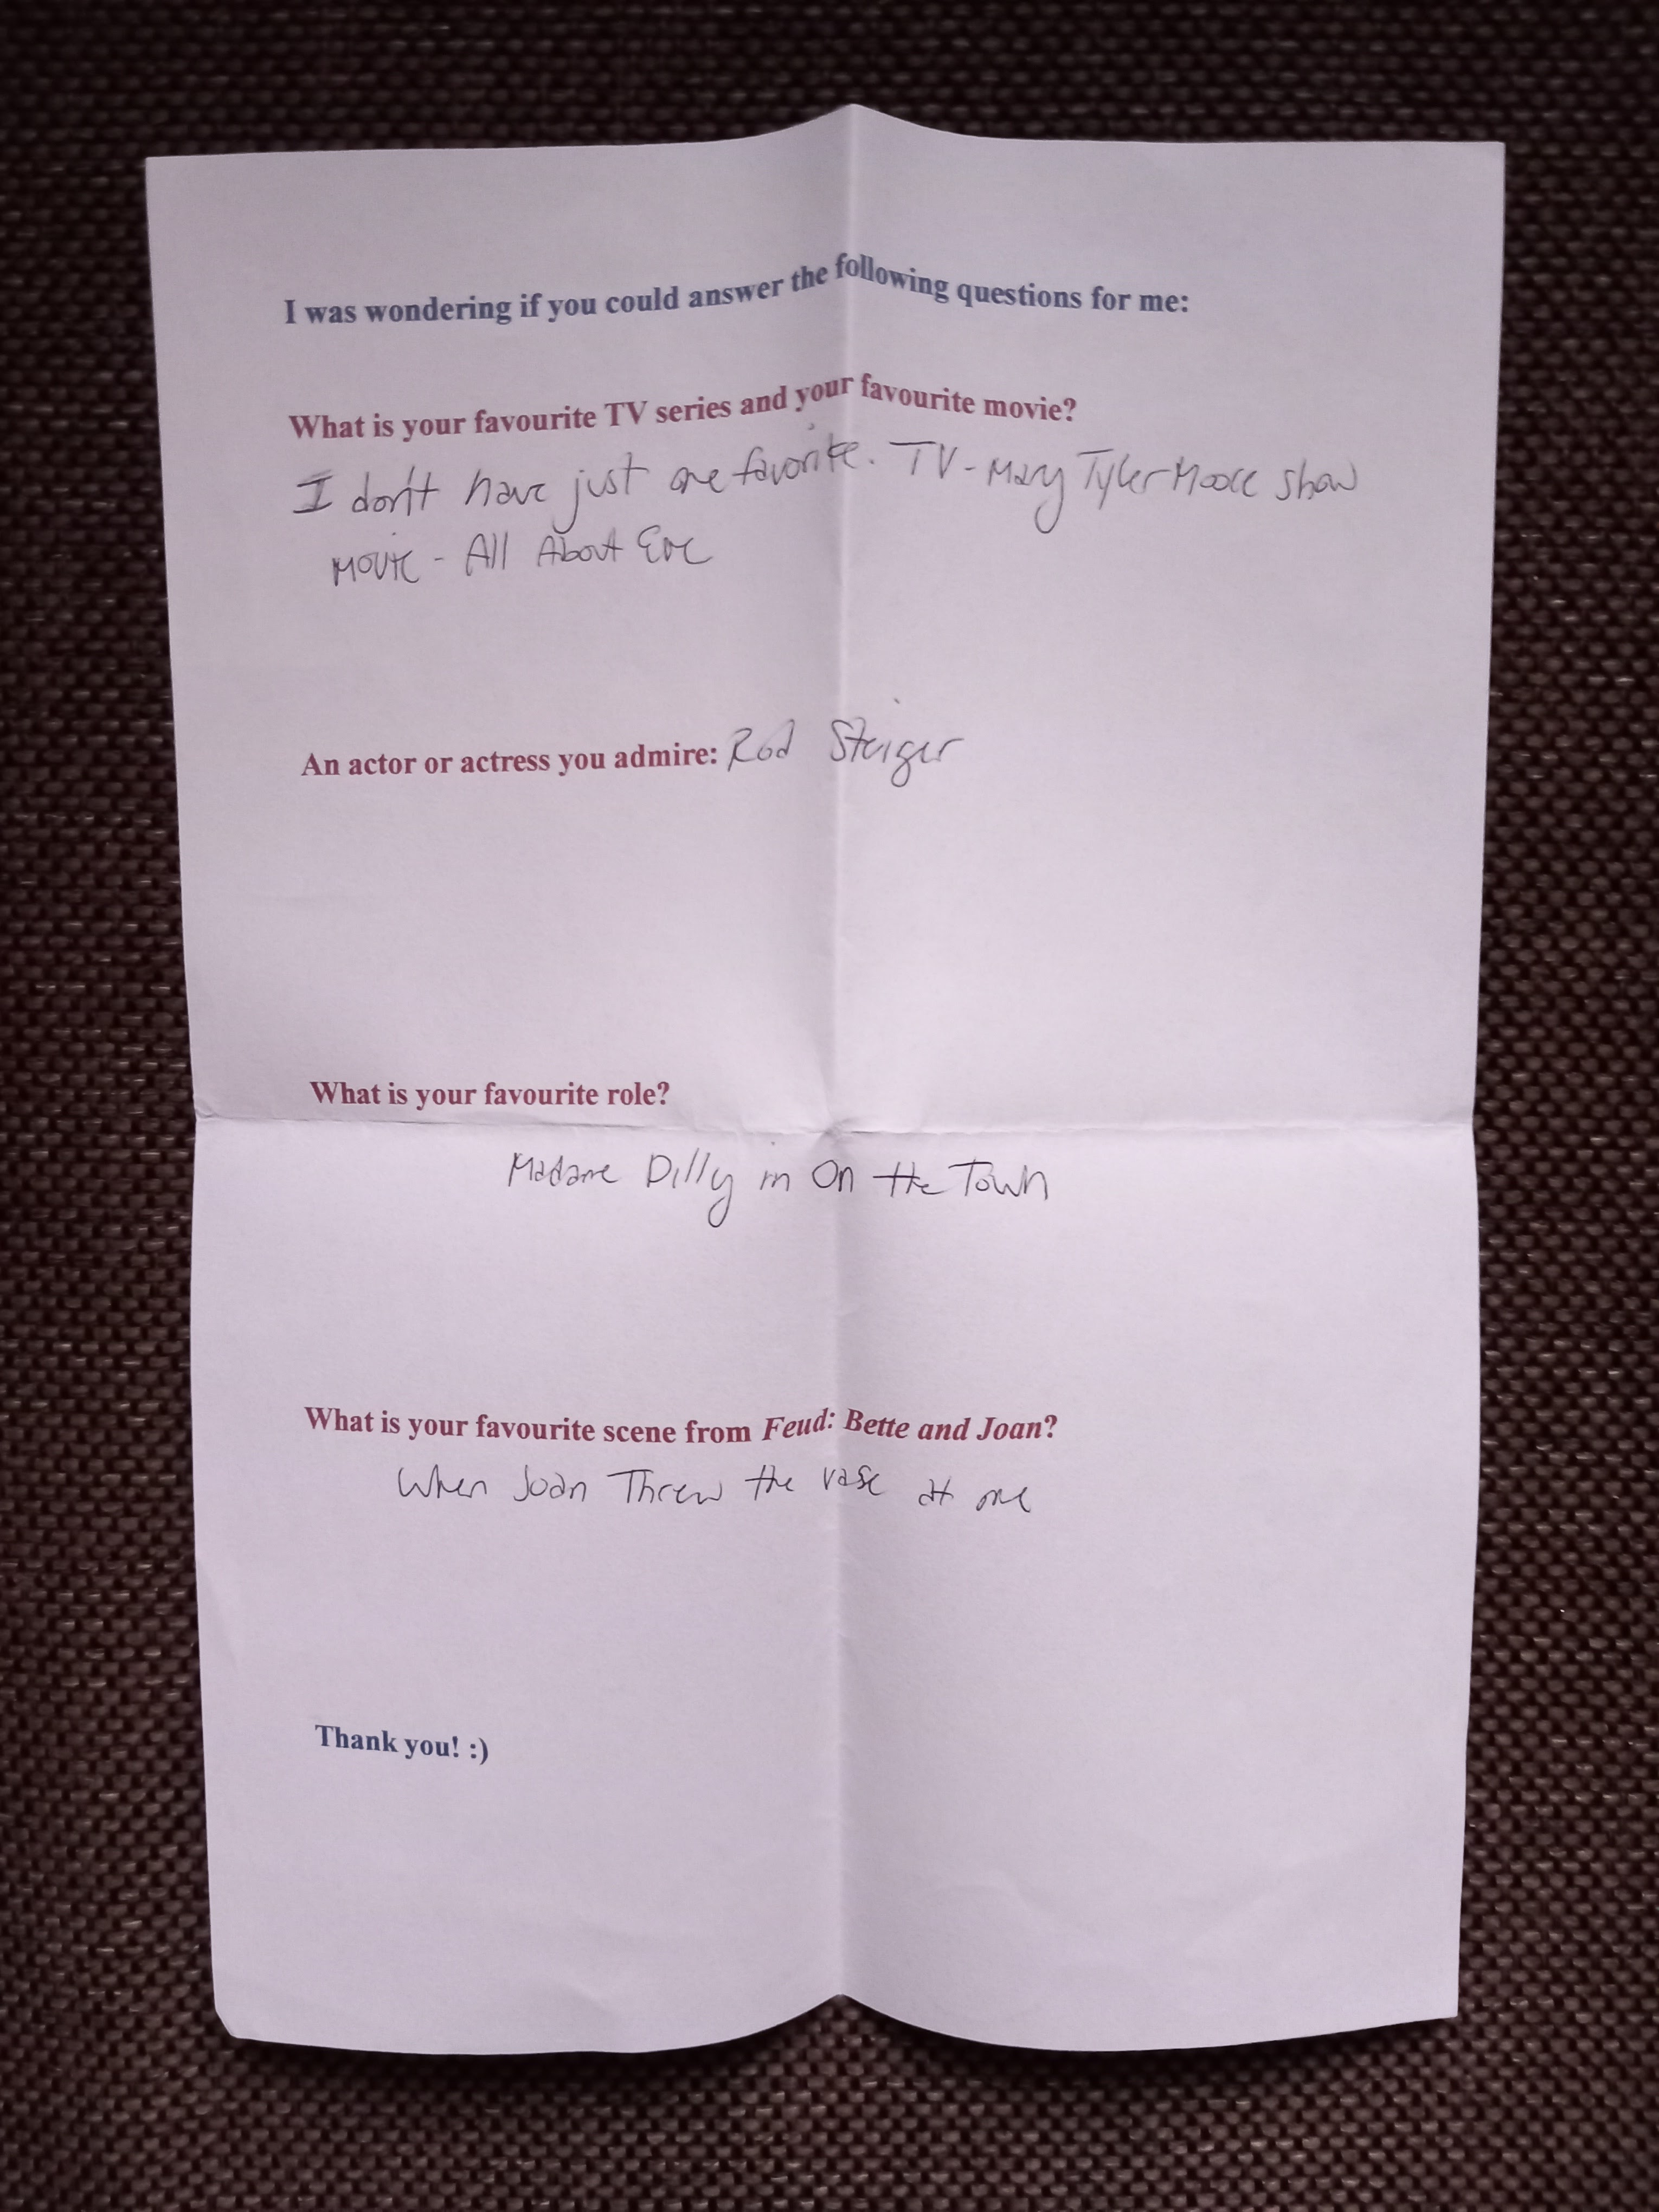 I was wondering if you could answer the following questions for me:
What is your favourite TV series and your favourite movie?
I don't have just one favorite. TV - Mary Tyler Moore show
Movie - All About Eve
An actor or actress you admire: Rod Steiger
What is your favourite role?
Madame Dilly in On the Town
What is your favourite scene from Feud: Bette and Joan?
When Joan Threw the vase at me
Thank you! :)